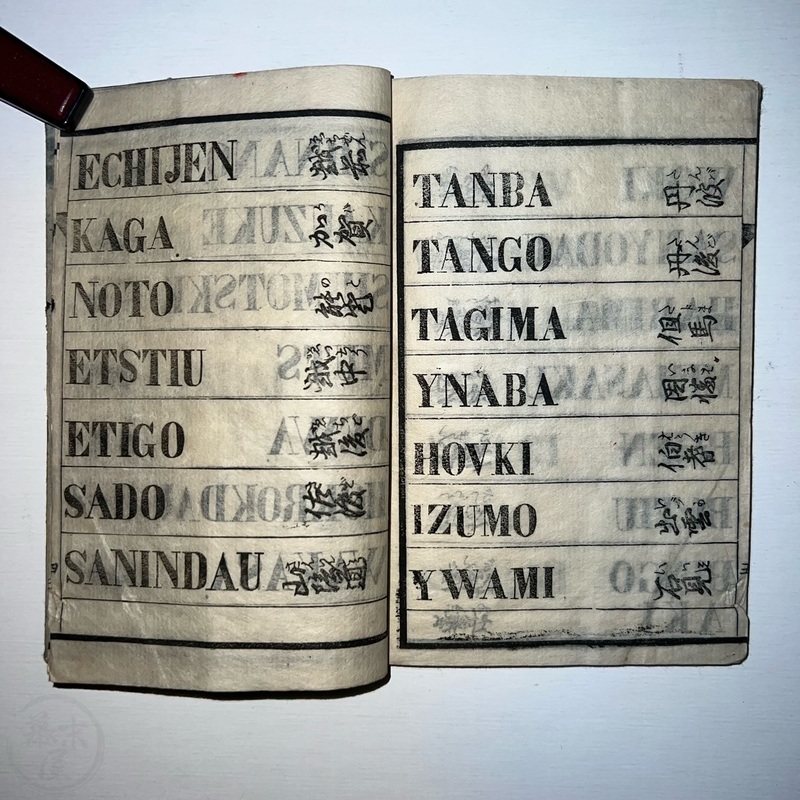 ECHIJEN 越前
KAGA 加賀
NOTO 能登
ETSTIU 越中
ETIGO 越後
SADO 佐渡
SANINDAU 山陰道
TANBA 丹波
TANGO 丹後
TAGIMA 但馬
YNABA 因幡
HOVKI 伯耆
IZUMO 出雲
YWAMI 石見